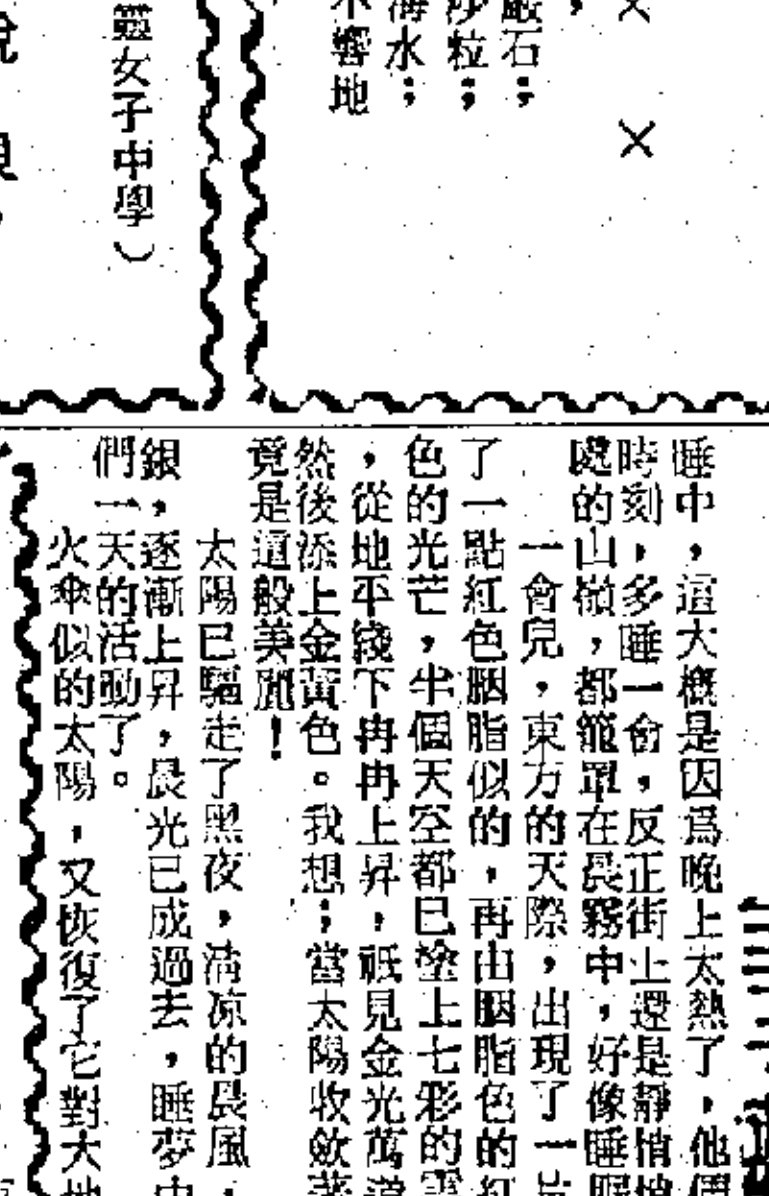 ×
×
巖石；
沙粒；
海水；
不響地
靈女子中學）
睡中，這大概是因爲晚上太熱了，他們
時刻，多睡一會，反正街上還是靜悄悄地
處的山嶺，都籠罩在晨霧中，好像睡眼
一會兒，東方的天際，出現了一片
了一點紅色胭脂似的，再由胭脂色的紅
色的光芒，半個天空都已塗上七彩的雲
，從地平綫下冉冉上昇，祇見金光萬道
然後添上金黃色。我想；當太陽收歛著
竟是這般美麗！
太陽已驅走了黑夜，清凉的晨風，
銀，逐漸上昇，晨光已成過去，睡夢中
們一天的活動了。
火傘似的太陽，又恢復了它對大地